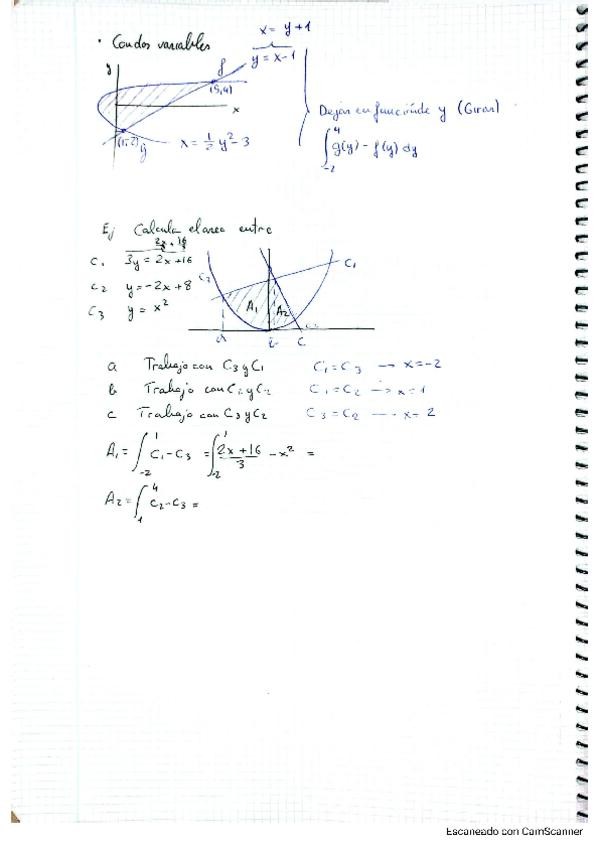 x = y + 1
• Con dos variables
y = x - 1
y
f
(5,4)
x
Dejar en función de y (Girar)
(-1,-2) g
x = 1/2 y² - 3
∫₋₂⁴ g(y) - f(y) dy
Ej Calcula el area entre
C₁ 3y = 2x + 16
C₂ y = -2x + 8
C₃ y = x²
C₁
C₃
A₁
A₂
a
b
c
a Trabajo con C₃ y C₁ C₁ = C₃ → x = -2
b Trabajo con C₁ y C₂ C₁ = C₂ → x = 1
c Trabajo con C₃ y C₂ C₃ = C₂ → x = 2
A₁ = ∫₋₂¹ C₁ - C₃ = ∫₋₂¹ (2x + 16)/3 - x² =
A₂ = ∫₁⁴ C₂ - C₃ =
Escaneado con CamScanner